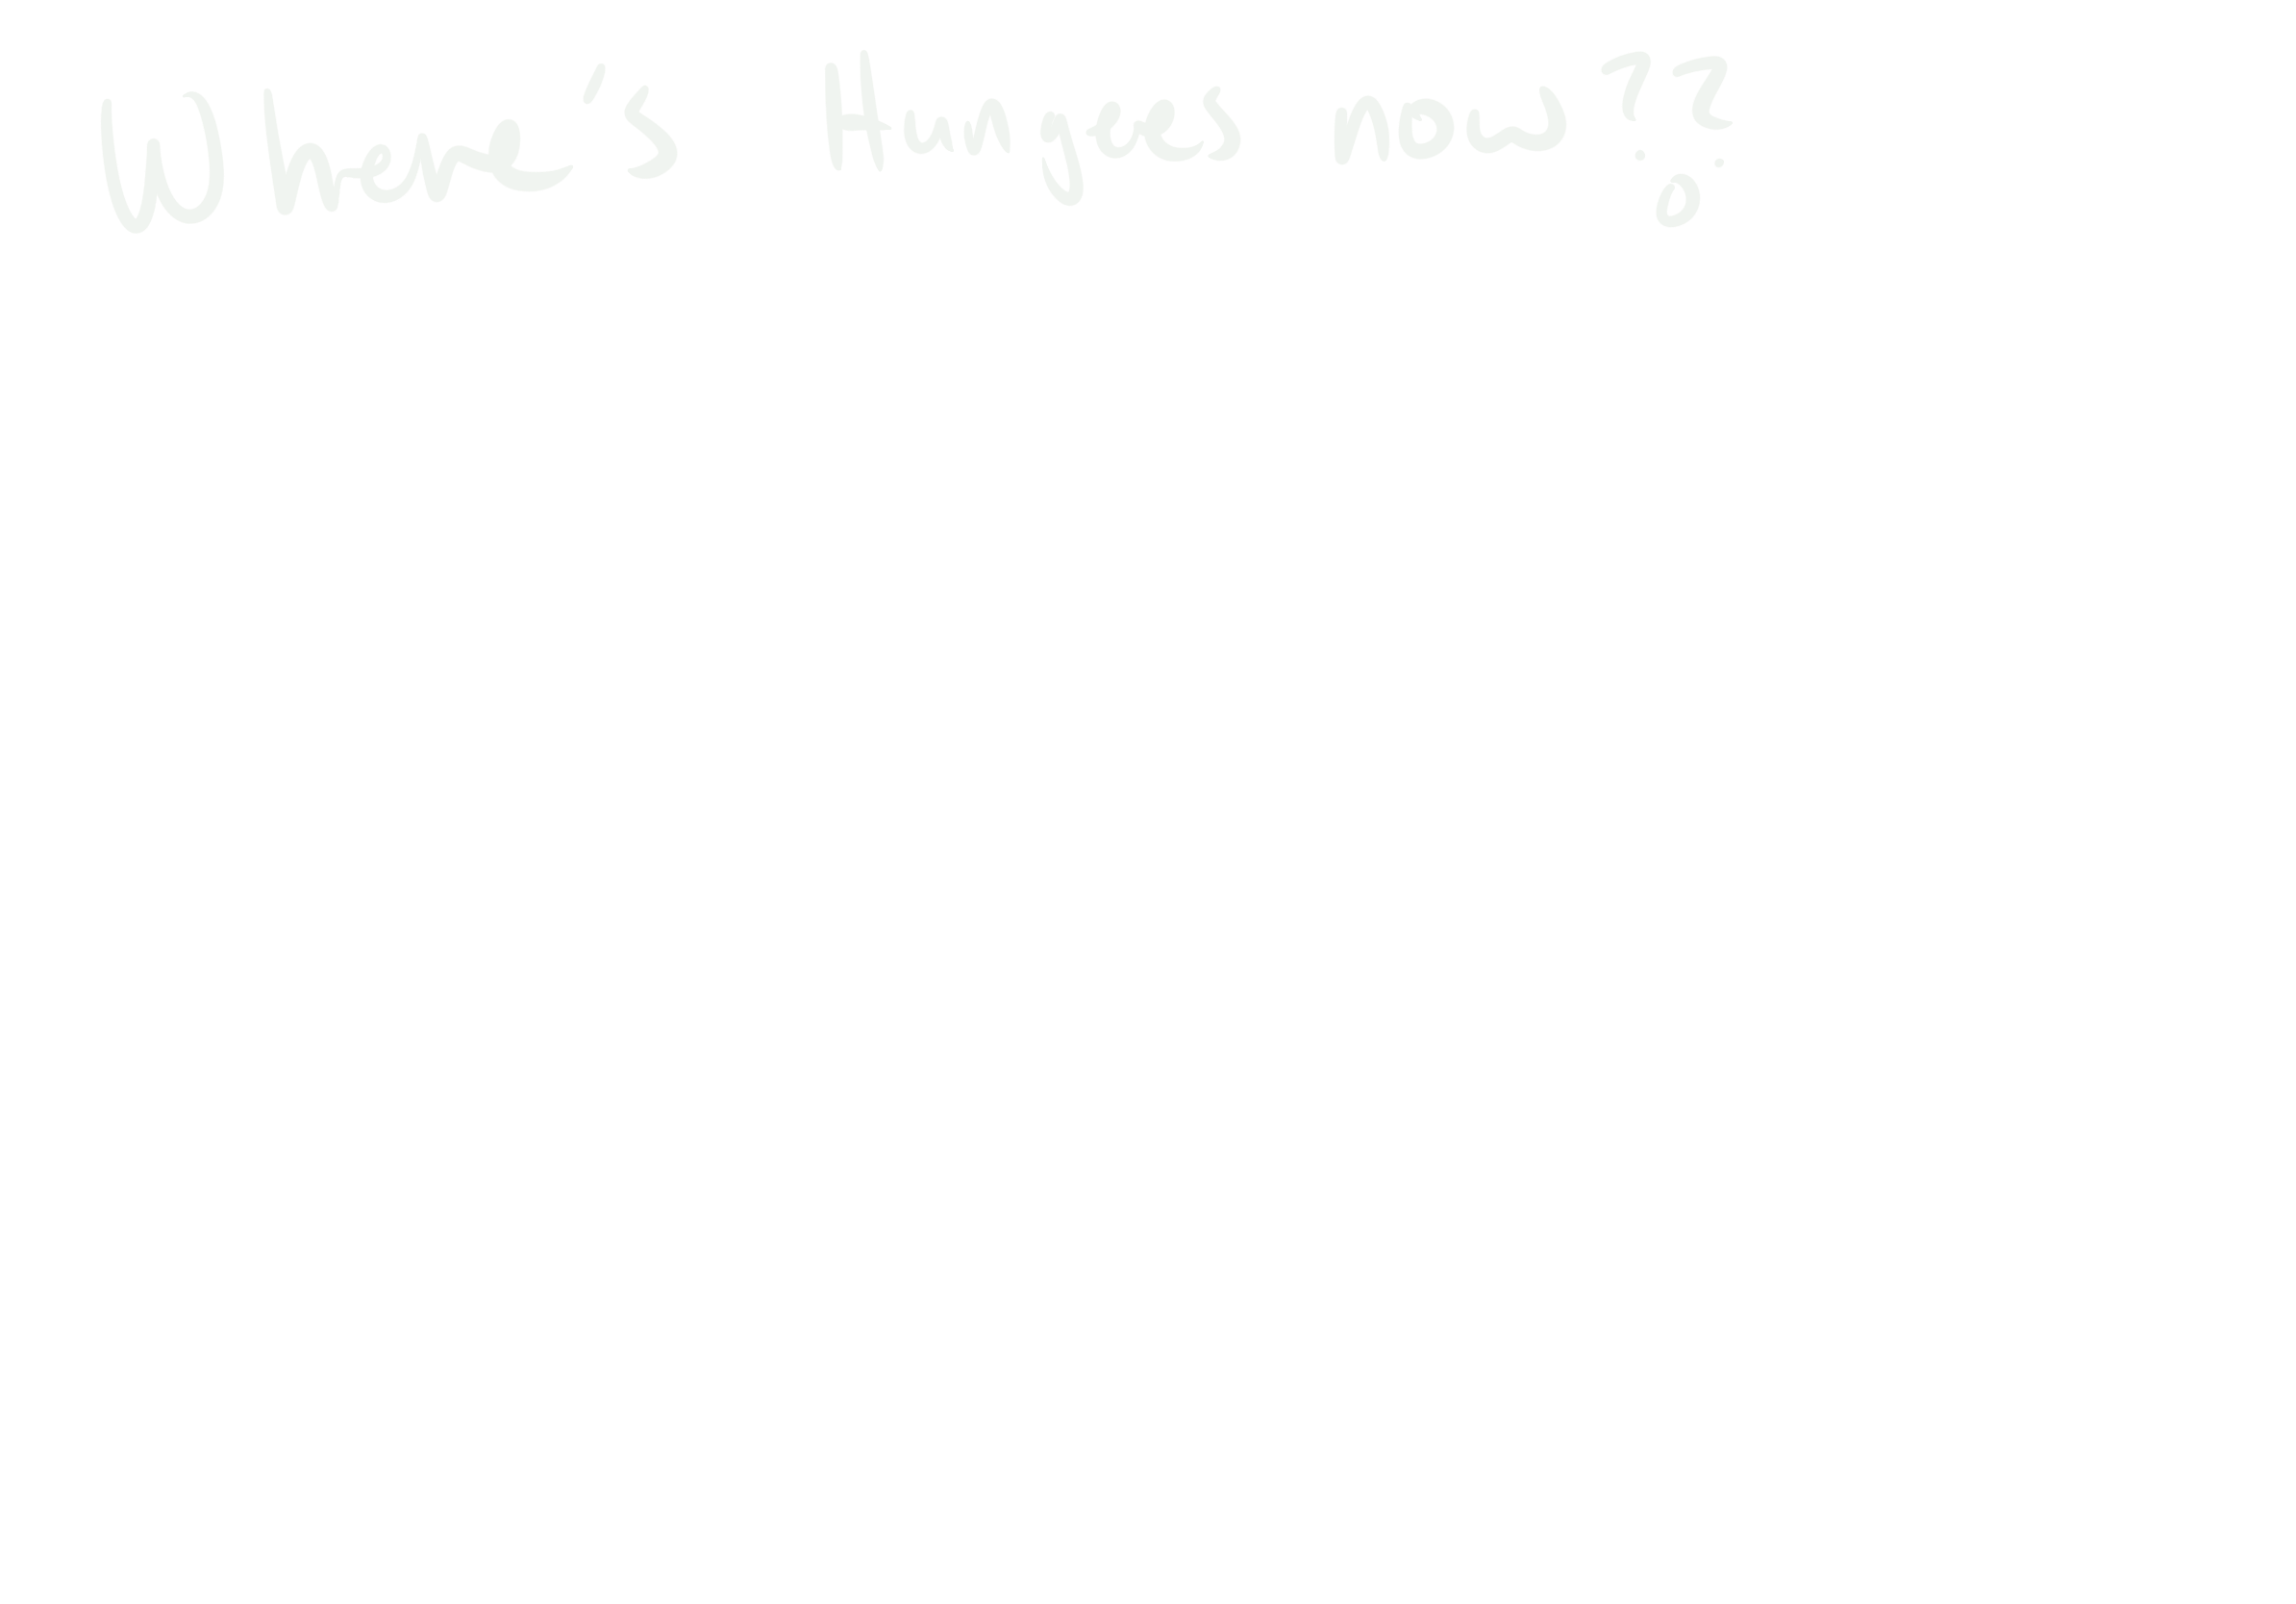 Where's Hungees now??